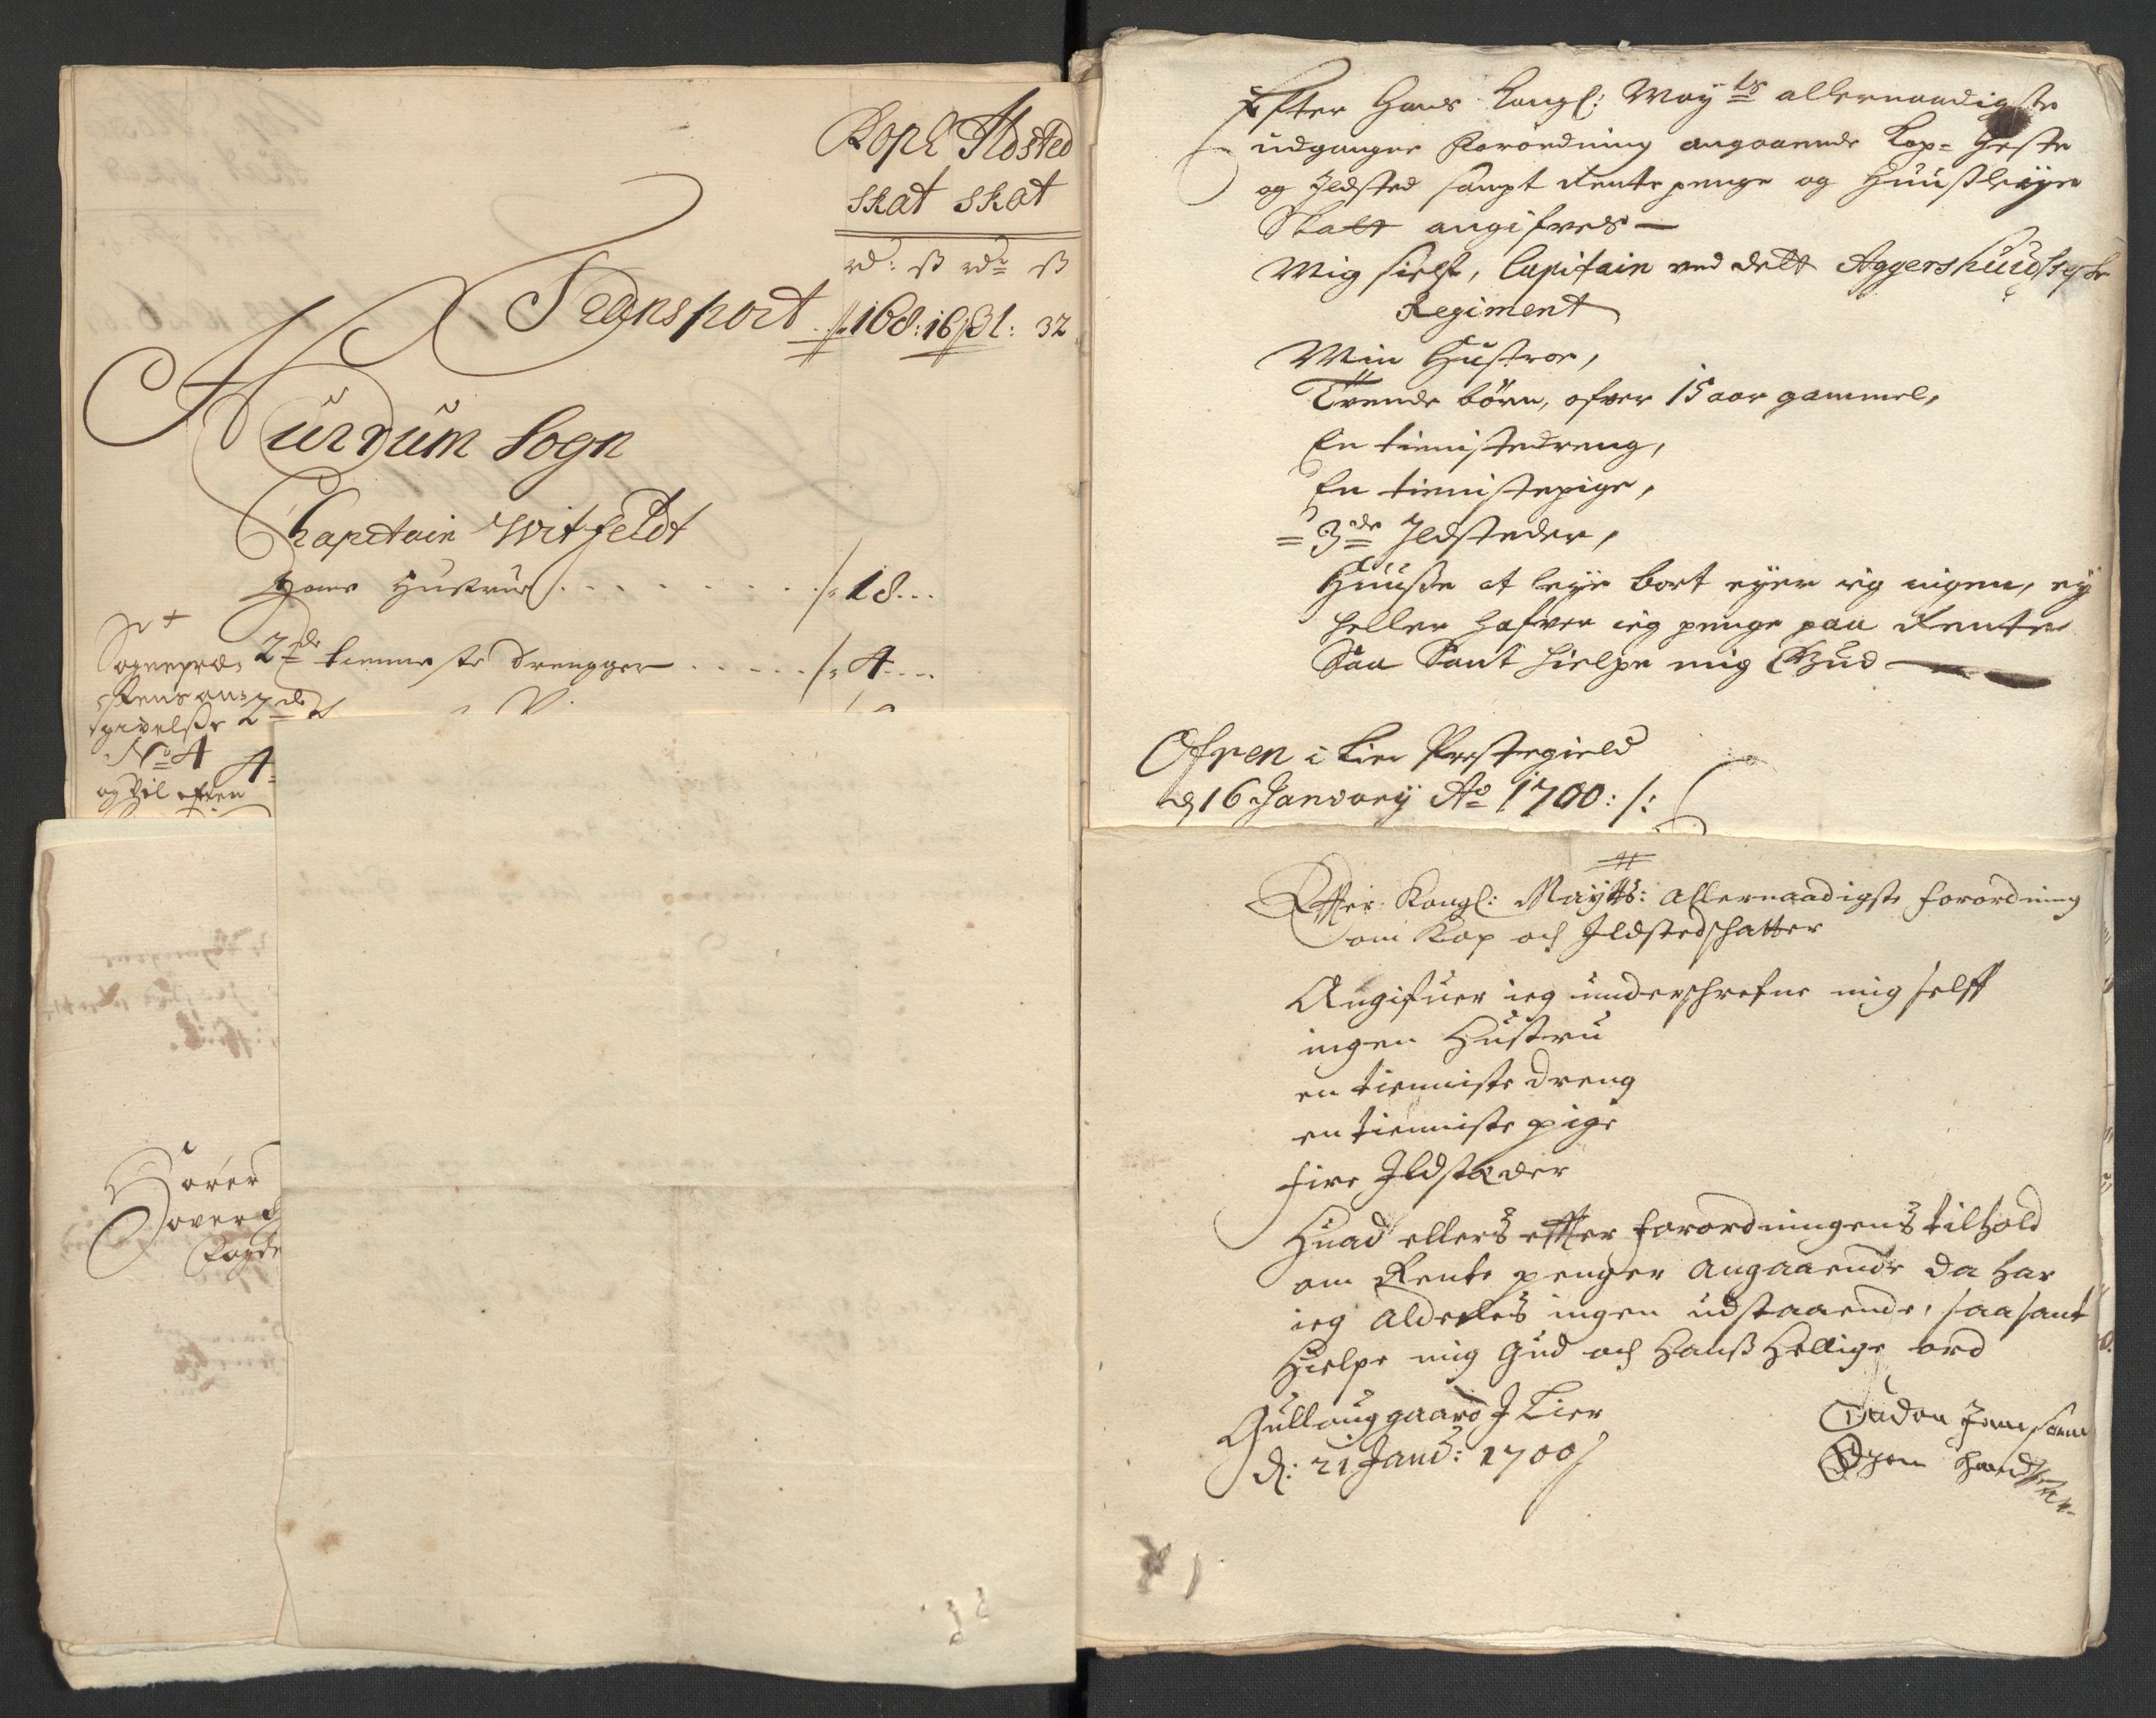 Kop & Ildsted
skat skat
rd: ß rdr ß
Transport 168:16 ß1: 32
Hurdum Sogn
Chapitain Witfeldt
Hans Hustrue . . . . . . . . . 18 . . .
Sognepræ-
2de tienneste drengger . . . . . 4 . . . .
stens an-
givelsse 2de
No 4 4
og vil efter
Hører
Efter Hans Kongl: Mayts allernaadigste
udgangne Forordning angaaende Kop- Heste
og Ildsted sampt Rente penge og Huußleye
Skatt angifves —
Mig sielf, Capitain ved dett Aggershuusiske
Regiment
Min Hustroe,
Trende börn, ofver 15 aar gammel,
En tienistedreng,
En tienistepige,
= 3de Ildsteder,
Huusse at leye bort eyer ieg ingen, ey
heller hafver ieg penge paa Rente
Saa Sant hielpe mig Gud —
Ofren i Lier Prestegield
d 16 January Ao 1700 :/:
Effter Kongl: Maytts: Allernaadigste forordning
om Kop och Ildstedschatter
Angifuer ieg underschrefne mig selff
ingen Hustru
en tienniste dreng
en tienniste pige
fire Ildstæder
Huad ellers effter forordningens tilhold
om Rente penger angaaende da har
ieg aldelles ingen udstaaende, saa sant
Hielpe mig Gud och Hanß Hellige ord
Gullauggaard I Lier
d: 21 Janu: 1700